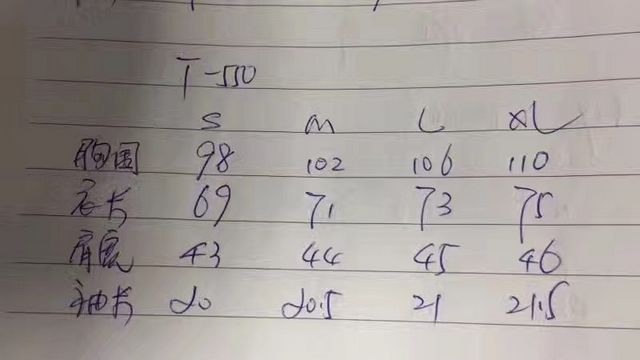 T-550
S M L XL
胸围 98 102 106 110
衣长 69 71 73 75
肩宽 43 44 45 46
袖长 20 20.5 21 21.5